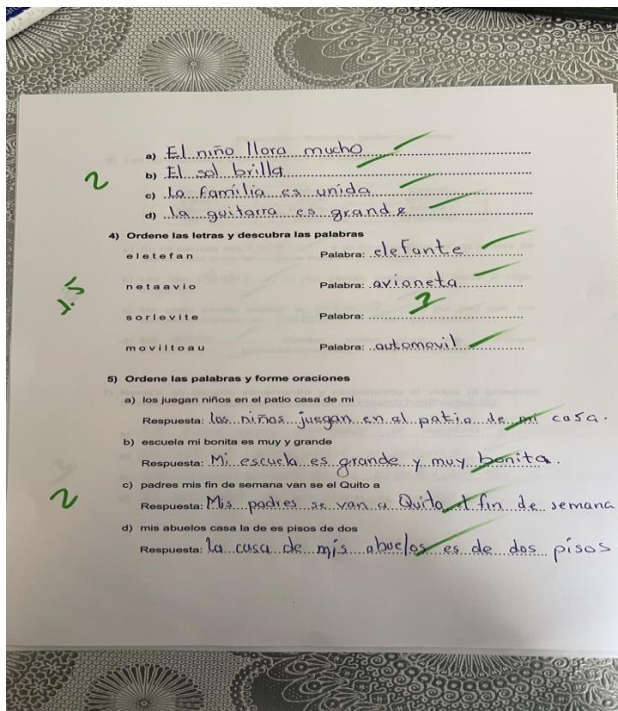 a) El niño llora mucho
b) El sol brilla
c) La família es unida
d) la guitarra es grande
2
4) Ordene las letras y descubra las palabras
e l e t e f a n Palabra: elefante
n e t a a v i o Palabra: avioneta
1.5
s o r l e v i t e Palabra:
m o v i l t o a u Palabra: automovil
5) Ordene las palabras y forme oraciones
a) los juegan niños en el patio casa de mi
Respuesta: los niños juegan en el patio de mi casa.
b) escuela mi bonita es muy y grande
Respuesta: Mi escuela es grande y muy bonita.
c) padres mis fin de semana van se el Quito a
2
Respuesta: Mis padres se van a Quito el fin de semana
d) mis abuelos casa la de es pisos de dos
Respuesta: La casa de mis abuelos es de dos pisos